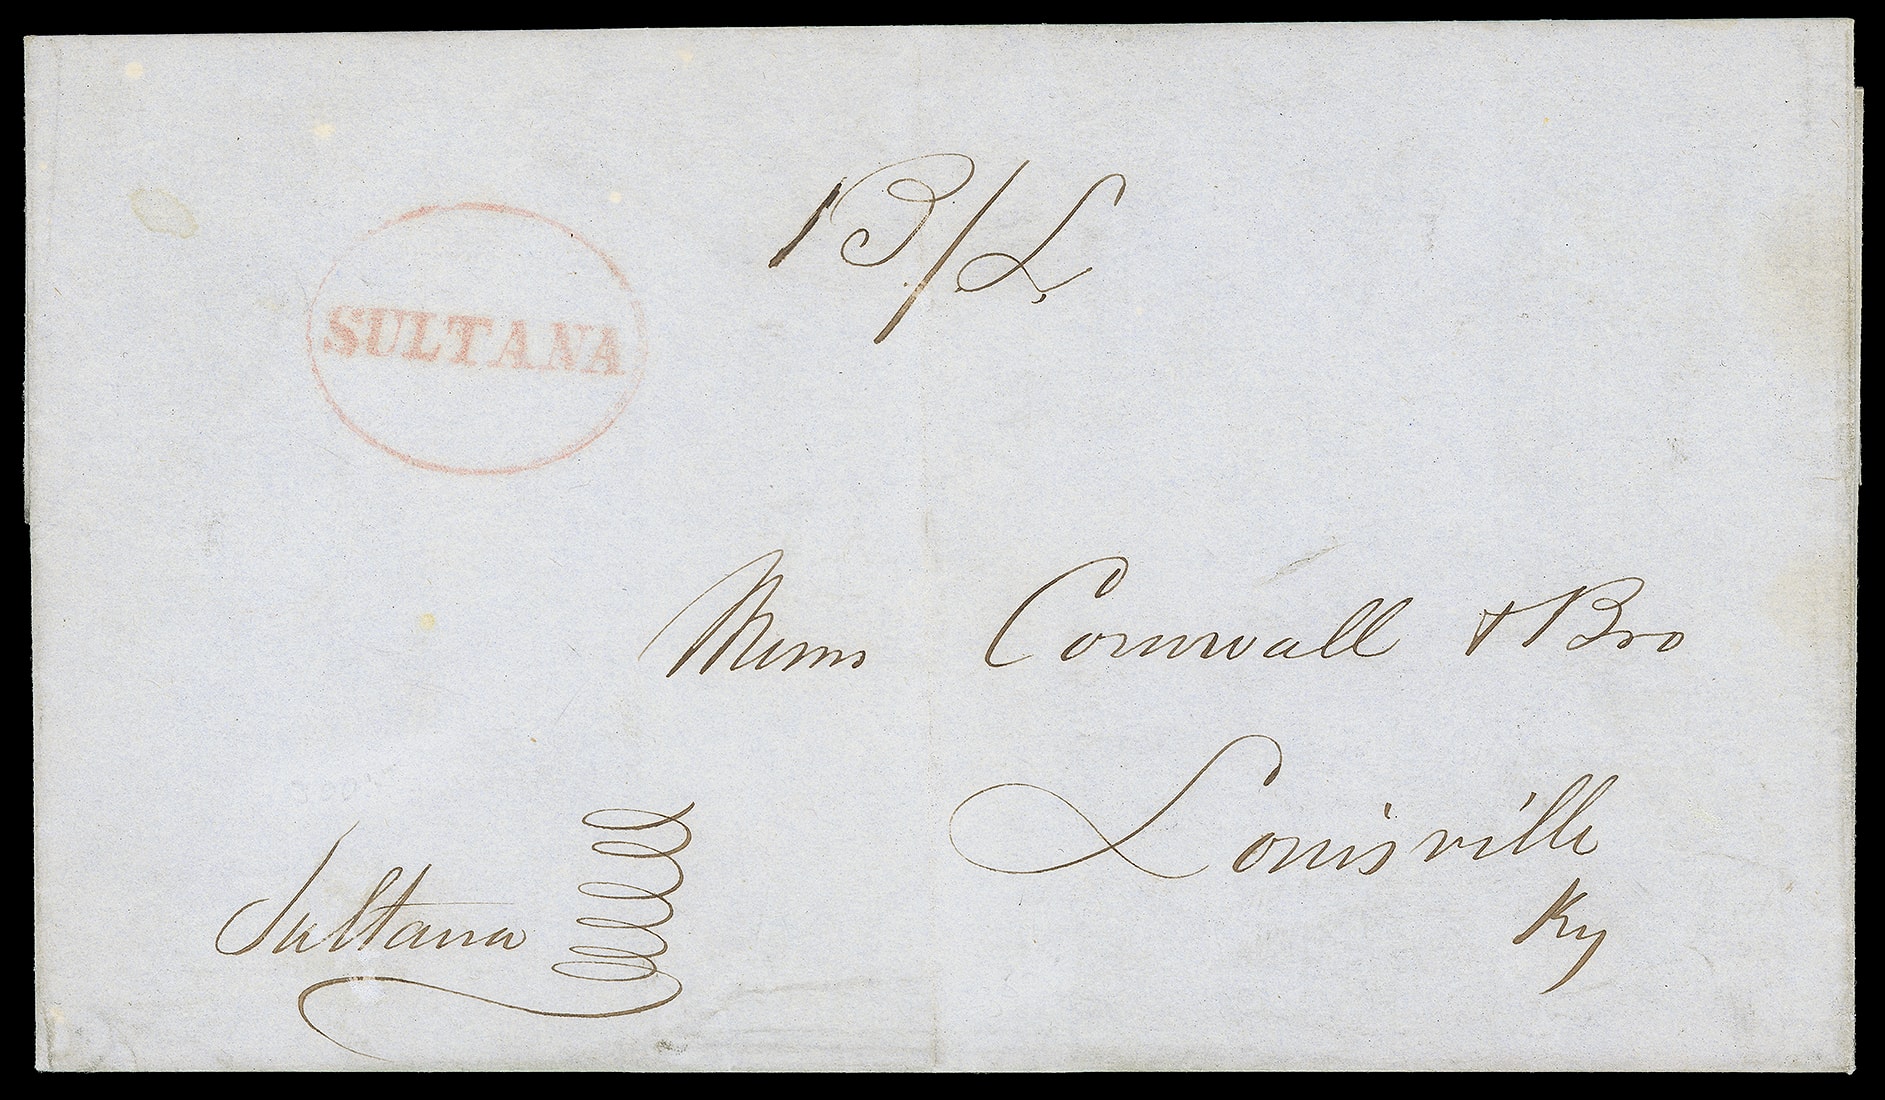 B/L.
SULTANA
Messrs Cornwall + Bro
Louisville
Ky
Sultana